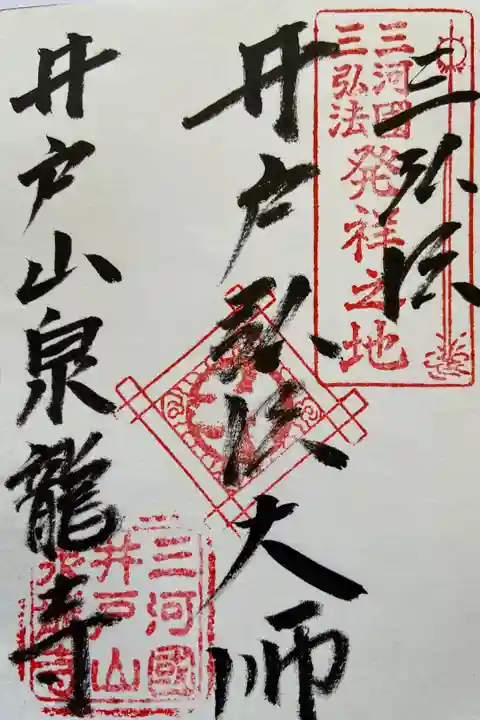 三河國
三弘法
発祥之地
三弘法
井戸弘法大師
井戸山泉龍寺
三河國
井戸山